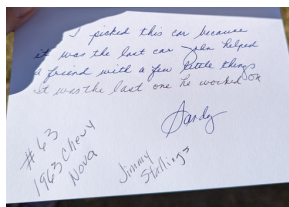 I picked this car because
it was the last car John helped
a friend with a few little things
It was the last one he worked on
Sandy
# 63
1963 Chevy
Nova
Jimmy
Stallings